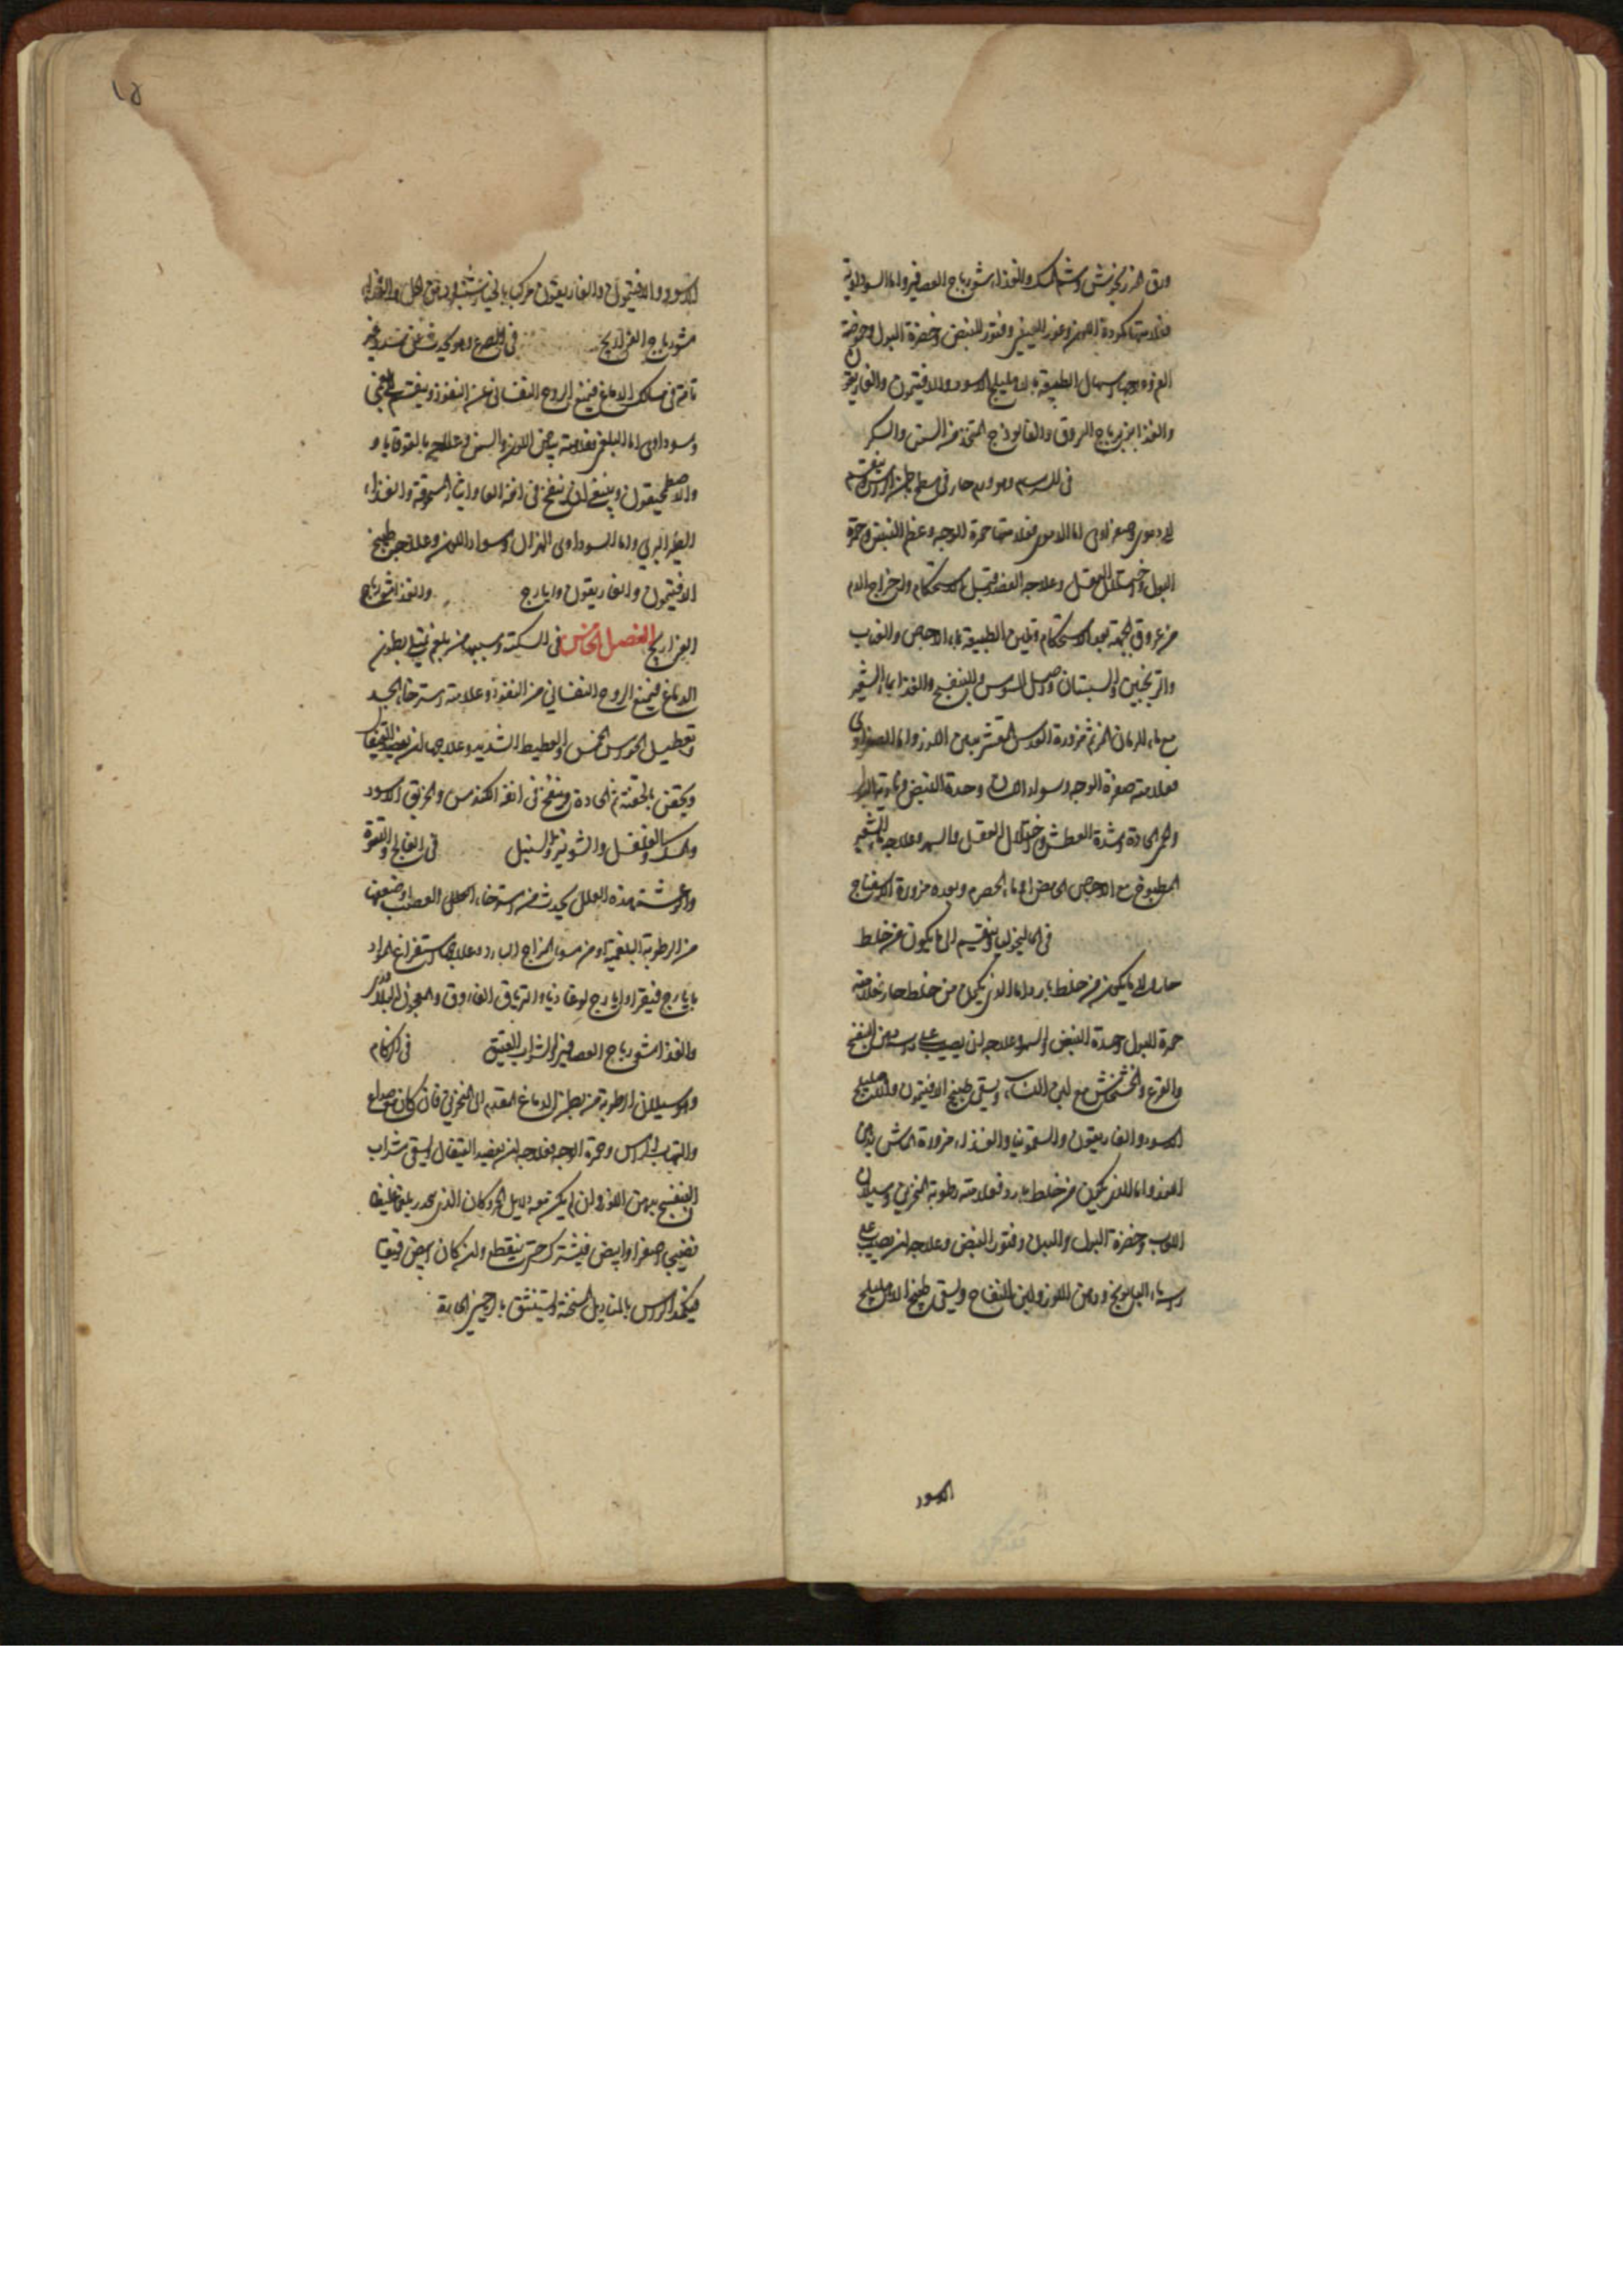 ورق المرزنجوش وشم المسك والغذاء شورباج العصافير واما السوداوية
فعلامتها كمودة اللون وغور العينين وفتور النبض وخضرة البول وحموضة
الفم وعلاجها اسهال الطبيعة بالاهليلج الاسود والافتيمون والغاريقون
والغذا مزيرباج المروق والفالوذج المتخذ من السمن والسكر
في السرسام وهو ورم حار في سطح حجاب الراس وينقسم
الى دموي وصفراوي اما الدموي فعلامتها حمرة الوجه وعظم النبض وحمرة
البول واختلال العقل وعلاجه الفصد قبل الاستحكام واخراج الدم
من عروق الجبهة بعد الاستحكام وتليين الطبيعة بماء الاجاص والعناب
والترنجبين والسبستان واصل السوس والبنفسج والغذا ماء الشعير
مع ماء الرمان المز ثم مزورة العدس المقشر بدهن اللوز واما الصفراوي
فعلامته صفرة الوجه وسواد اللسان وحدة النبض ونارية البول
والحمى الحادة وشدة العطش واختلال العقل والسهر وعلاجه ماء الشعير
المطبوخ مع الاجاص الحامض او ماء الحصرم وبعده مزورة الاسفناج
في الماليخوليا وينقسم الى ما يكون من خلط
حار والى ما يكون من خلط بارد اما الذي يكون من خلط حار فعلامته
حمرة البول وحدة النبض والسهر وعلاجه ان يصب على راسه دهن البنفسج
والقرع والخشخاش مع لبن النساء ويسقى طبيخ الافتيمون والاهليلج
الاسود والغاريقون والسقمونيا والغذاء مزورة الماش بدهن
اللوز واما الذي يكون من خلط بارد فعلامته رطوبة المنخرين وسيلان
اللعاب وخضرة البول وفتور النبض وعلاجه ان يصب على
راسه ماء البابونج ودهن اللوز ولبن اللقاح ويسقى طبيخ الاهليلج
الاسود
١٥
الاسود والافتيمون والغاريقون مركب بالخيارشنبر ودهن الخل والغذاء
شورباج الفراريج في الصرع وهو يحدث من سدة غير
تامة في مسالك الدماغ فيمنع الروح النفساني عن النفوذ وينقسم الى بلغمي
وسوداوي اما البلغمي فعلامته بياض اللون والسمن وعلاجه بالقوقايا و
والاصطمخيقون وينبغي ان ينفخ في انفه الفاوانيا المسحوقة والغذاء
الطير البري واما السوداوي الهزال وسواد اللون وعلاجه طبيخ
الافتيمون والغاريقون وايارج والغذا شورباج
الفراريج الفصل الخامس في السكتة وسببها من بلغم يمتلي بطون
الدماغ فيمنع الروح النفساني من النفوذ وعلامته استرخاء الجسد
وتعطيل الحواس الخمس والغطيط الشديد وعلاجها ان يفصد القيفال
ويحقن بالحقنة الحادة وينفخ في انفه الكندس والخربق الاسود
والمسك والفلفل والشونيز والسنبل في الفالج واللقوة
والرعشة هذه العلل يحدث من استرخاء العضل والعصب وضعفها
من الرطوبة البلغمية او من سوء المزاج البارد وعلاجها استفراغ المواد
بايارج فيقرا وايارج لوغاذيا والترياق الفاروق والمعجون البلادر
والغذا شورباج العصافير والشراب العتيق في الزكام
وهو سيلان الرطوبة من بطن الدماغ المقدم الى المنخرين فان كان مع صداع
والتهاب الراس وحمرة الوجه فعلاجه ان يفصد القيفال ويسقى شراب
البنفسج بدهن اللوز وان لم يكن معه دلايل الحر وكان الذي ينحدر بلغما غليظا
نضيجا اصفر او ابيض فيترك حتى ينقطع وان كان ابيض رقيقا
فيكمد الراس بالمناديل المسخنة ويستنشق